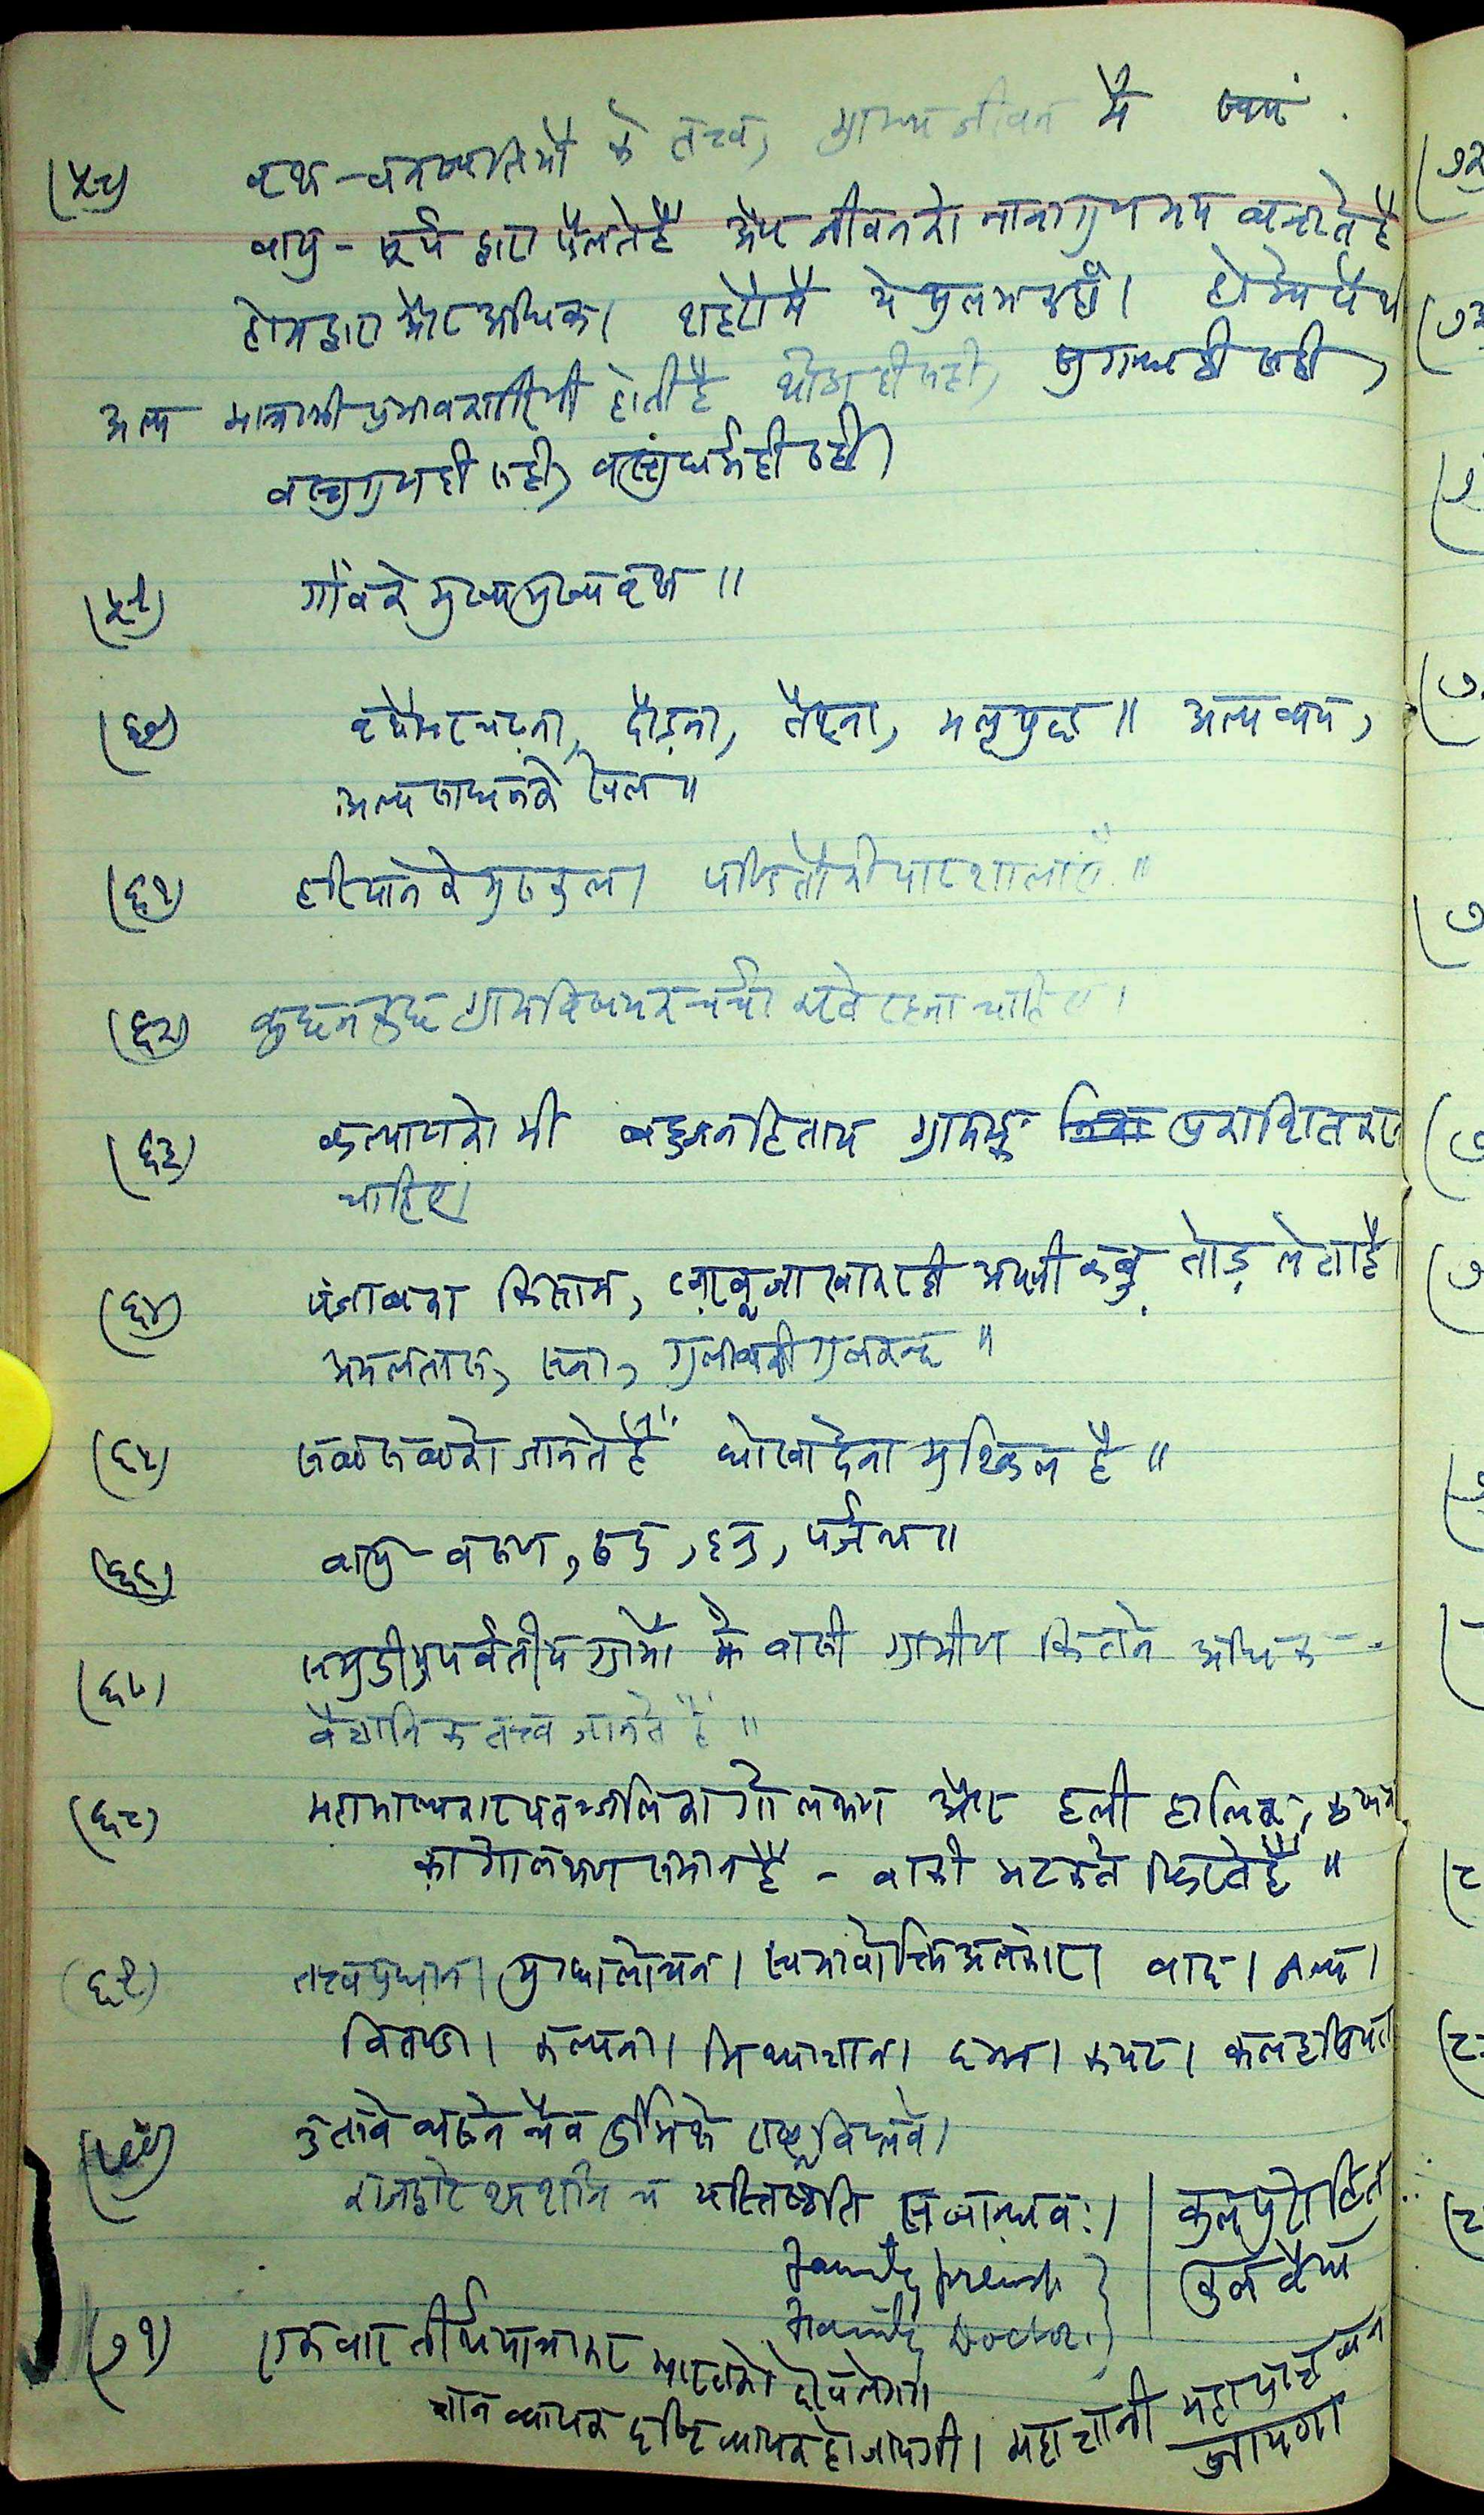 (५८) वृक्ष-वनस्पतियों के तत्त्व, ग्राम्य जीवन में स्वयं
वायु-सूर्य द्वारा फैलते हैं और जीवनको नानागुणमय बनाते हैं
होमद्वारा और अधिक। शहरोंमें ये सुलभ कहाँ। होम्योपैथी
अल्प मात्राकी प्रभावकारिणी होती है थोडा ही सही, सुगन्ध ही सही,
वस्तुगुण ही सही, वस्तुधर्म ही सही।
(५९) गाँवके मुख्य मुख्य वृक्ष॥
(६०) वृक्षोंपर चढ़ना, दौड़ना, तैरना, मल्लयुद्ध॥ अल्प व्यय,
अल्प साधनके खेल॥
(६१) हरियानेके गुरुकुल। पण्डितोंकी पाठशालाएँ॥
(६२) कुछ न कुछ ग्रामविषयक चर्चा करते रहना चाहिए।
(६३) कल्याणको भी बहुजनहिताय ग्रामाङ्क प्रकाशित करना
चाहिए।
(६४) पंजाबका किसान, खरबूजा खाकर ही अपनी कब्ज़ तोड़ लेता है।
अमलतास, सना, गुलाबकी गुलकन्द॥
(६५) सब सबको जानते हैं। धोखा देना मुश्किल है॥
(६६) वायु-वरुण, रुद्र, इन्द्र, पर्जन्य॥
(६७) समुद्रीय पर्वतीय ग्रामों के वासी ग्रामीण कितने अधिक
वैज्ञानिक तत्त्व जानते हैं॥
(६८) महाभाष्यकार पतञ्जलिका गोलक्षण और हली हालिक, कृषक
का गोलक्षण समान है - बाकी भटकते फिरते हैं॥
(६९) तत्त्वप्रधान। मुग्धालोचन। स्वभावोक्ति अलंकार। वाद। जल्प।
वितण्डा। कल्पना। मिथ्याज्ञान। दम्भ। कपट। कलहप्रियता
(७०) उत्सवे व्यसने चैव दुर्भिक्षे राष्ट्रविप्लवे।
राजद्वारे श्मशाने च यस्तिष्ठति स बान्धवः।
कुलपुरोहित
कुलवैद्य
Family friends
Family Doctor.
(७१) एकबार तीर्थयात्राकर भारतको देख लेगा।
ज्ञान व्यापक दृष्टि व्यापक हो जायगी। महाज्ञानी महाप्राज्ञ बन
जायगा